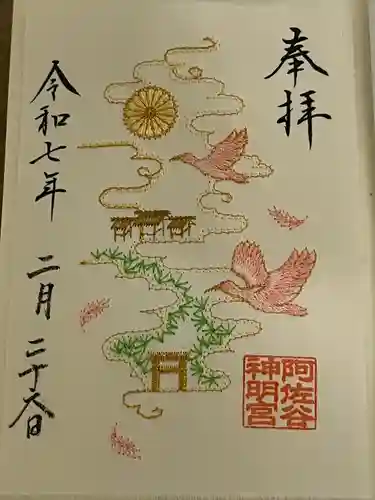 奉拝
阿佐谷
神明宮
令和七年 二月 二十八日